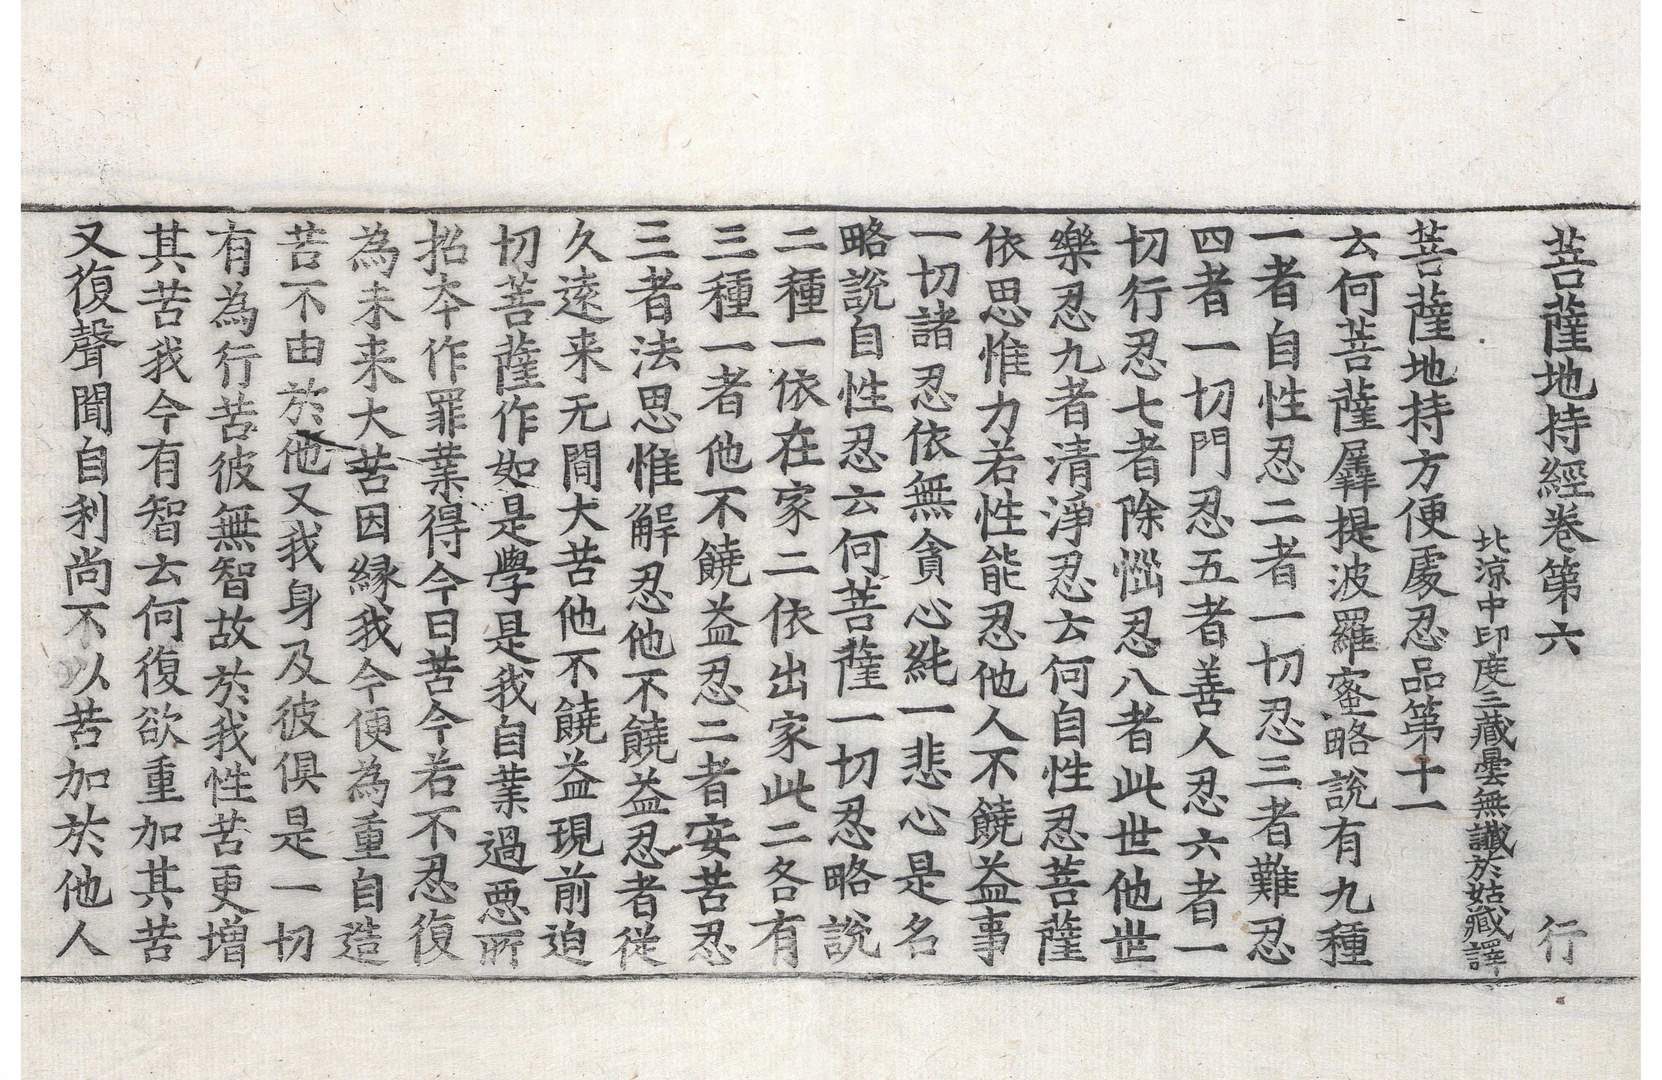 菩薩地持經卷第六　行
北涼中印度三藏曇無讖於姑臧譯
菩薩地持方便處忍品第十一
云何菩薩羼提波羅蜜略說有九種
一者自性忍二者一切忍三者難忍
四者一切門忍五者善人忍六者一
切行忍七者除惱忍八者此世他世
樂忍九者清淨忍云何自性忍菩薩
依思惟力若性能忍他人不饒益事
一切諸忍依無貪心純一悲心是名
略說自性忍云何菩薩一切忍略說
二種一依在家二依出家此二各有
三種一者他不饒益忍二者安苦忍
三者法思惟解忍他不饒益忍者從
久遠来无間大苦他不饒益現前迫
切菩薩作如是學是我自業過惡所
招本作罪業得今日苦今若不忍復
為未来大苦因縁我今便為重自造
苦不由於他又我身及彼俱是一切
有為行苦彼無智故於我性苦更增
其苦我今有智云何復欲重加其苦
又復聲聞自利尚不以苦加於他人